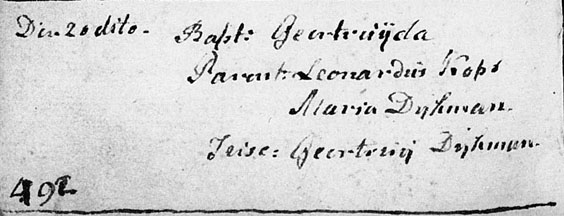 Die 20 dito. Bapt: Geertruijda
Parent: Leonardus Kops
Maria Dijkman.
Geertruij Dijkman.
49